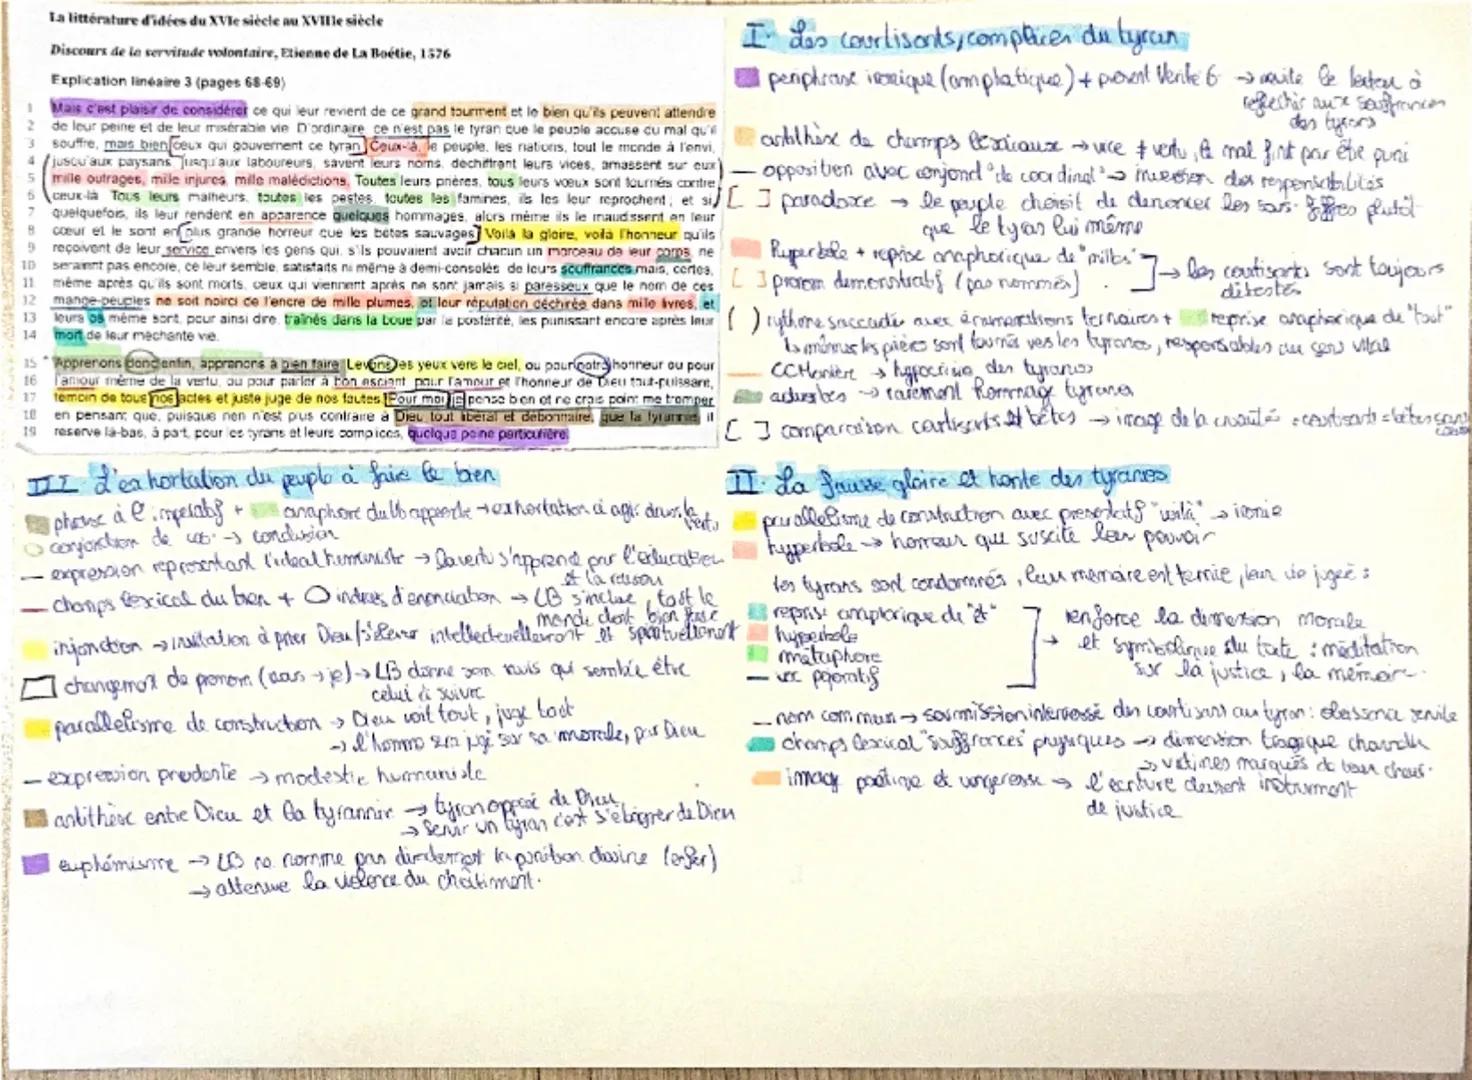 La littérature d'idées du XVIe siècle au XVIIIe siècle
Discours de la servitude volontaire, Etienne de La Boétie, 1576
Explication linéaire 3 (pages 68-69)
1 Mais c'est plaisir de considérer ce qui leur revient de ce grand tourment et le bien qu'ils peuvent attendre
2 de leur peine et de leur misérable vie. D'ordinaire, ce n'est pas le tyran que le peuple accuse du mal qu'il
3 souffre, mais bien ceux qui gouvernent ce tyran. Ceux-là, le peuple, les nations, tout le monde à l'envi,
4 jusqu'aux paysans, jusqu'aux laboureurs, savent leurs noms, déchiffrent leurs vices, amassent sur eux
5 mille outrages, mille injures, mille malédictions. Toutes leurs prières, tous leurs vœux sont tournés contre
6 ceux-là. Tous leurs malheurs, toutes les pestes, toutes les famines, ils les leur reprochent ; et si,
7 quelquefois, ils leur rendent en apparence quelques hommages, alors même ils le maudissent en leur
8 cœur et le sont en plus grande horreur que les bêtes sauvages. Voilà la gloire, voilà l'honneur qu'ils
9 reçoivent de leur service envers les gens qui, s'ils pouvaient avoir chacun un morceau de leur corps, ne
10 seraient pas encore, ce leur semble, satisfaits ni même à demi-consolés de leurs souffrances mais, certes,
11 même après qu'ils sont morts, ceux qui viennent après ne sont jamais si paresseux que le nom de ces
12 mange-peuples ne soit noirci de l'encre de mille plumes, et leur réputation déchirée dans mille livres, et
13 leurs os même sont, pour ainsi dire, traînés dans la boue par la postérité, les punissant encore après leur
14 mort de leur méchante vie.
15 Apprenons donc enfin, apprenons à bien faire. Levons les yeux vers le ciel, ou pour notre honneur ou pour
16 l'amour même de la vertu, ou pour parler à bon escient pour l'amour et l'honneur de Dieu tout-puissant,
17 témoin de tous nos actes et juste juge de nos fautes. Pour moi, je pense bien et ne crois point me tromper
18 en pensant que, puisque rien n'est plus contraire à Dieu, tout libéral et débonnaire, que la tyrannie, il
19 réserve là-bas, à part, pour les tyrans et leurs complices, quelque peine particulière.
I. Les courtisants, complices du tyran
périphrase ironique (emphatique) + présent Vérité G → invite le lecteur à
réfléchir aux souffrances
des tyrans
antithèse de champs lexicaux → vice ≠ vertu, le mal finit par être puni
— opposition avec conjonct° de coordinat° → inversion des responsabilités
[ ] paradoxe → le peuple choisit de dénoncer les sous-fifres plutôt
que le tyran lui même
Hyperbole + reprise anaphorique de "milles"
→ les courtisants sont toujours
détestés
[ ] pronom démonstratif (pas nommés)
( ) rythme saccadé avec énumérations ternaires + reprise anaphorique de "tout"
↳ mêmes les pières sont tournés vers les tyrans, responsables au sens vital
— CC Manière → hypocrisie des tyrans
adverbes → rarement hommage tyrans
[ ] comparaison courtisants et bêtes → image de la cruauté : courtisants = bêtes sans
II. La fausse gloire et honte des tyrans
parallélisme de construction avec présentatif "voilà" → ironie
hyperbole → horreur que suscite leur pouvoir
les tyrans sont condamnés, leur mémoire est ternie, leur vie jugée :
reprise anaphorique de "et"
hyperbole
métaphore
— voc péjoratif
→ renforce la dimension morale
et symbolique du texte : méditation
sur la justice, la mémoire.
— nom commun → soumission intéressé des courtisans au tyran : obéissance servile
champs lexical "souffrances" physiques → dimension tragique
→ victimes marqués de leur chair.
image poétique et vengeresse → l'écriture devient instrument
de justice
III L'exhortation du peuple à faire le bien
phrase à l'impératif + anaphore du vb apprendre → exhortation à agir
vertu
conjonction de → conclusion
— expression représentant l'idéal humaniste → la vertu s'apprend par l'éducation
et la raison
— champs lexical du bien + O indices d'énonciation → LB s'inclue, tout le
monde doit bien faire
injonction → invitation à prier Dieu / s'élever intellectuellement et spirituellement
changement de pronom (nous → je) → LB donne son avis qui semble être
celui à suivre
parallélisme de construction → Dieu voit tout, juge tout
→ l'homme sera jugé sur sa morale, par Dieu
— expression prudente → modestie humaniste
antithèse entre Dieu et la tyrannie → tyran opposé de Dieu
→ Servir un tyran c'est s'éloigner de Dieu
euphémisme → LB ne nomme pas directement la punition divine (enfer)
→ atténue la violence du châtiment.